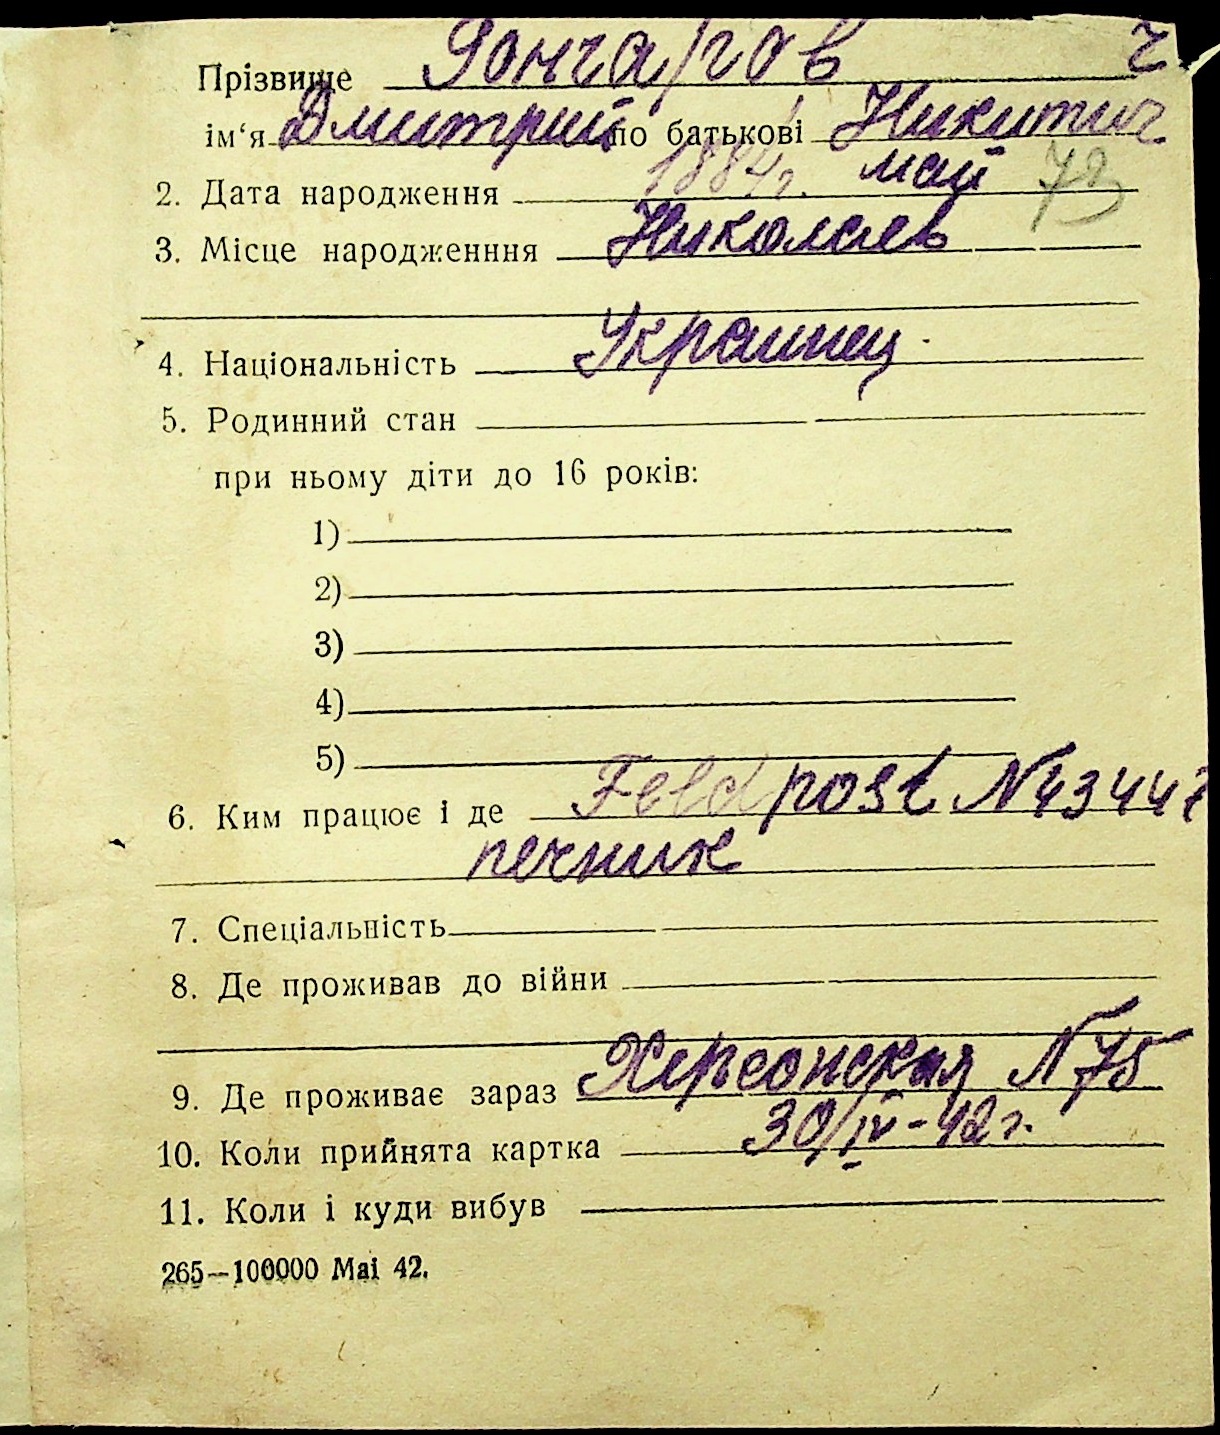 Прізвище Гончаров ч
ім‘я Дмитрий по батькові Никитич
2. Дата народження 1884г. май
3. Місце народженння Николаев
4. Національність Украинец.
5. Родинний стан
при ньому діти до 16 років:
1)
2)
3)
4)
5)
6. Ким працює і де Feldpost N43447
печник
7. Спеціальність
8. Де проживав до війни
9. Де проживає зараз Херсонская N75
10. Коли прийнята картка 30/IV-42г.
11. Коли і куди вибув
265—100000 Mai 42.